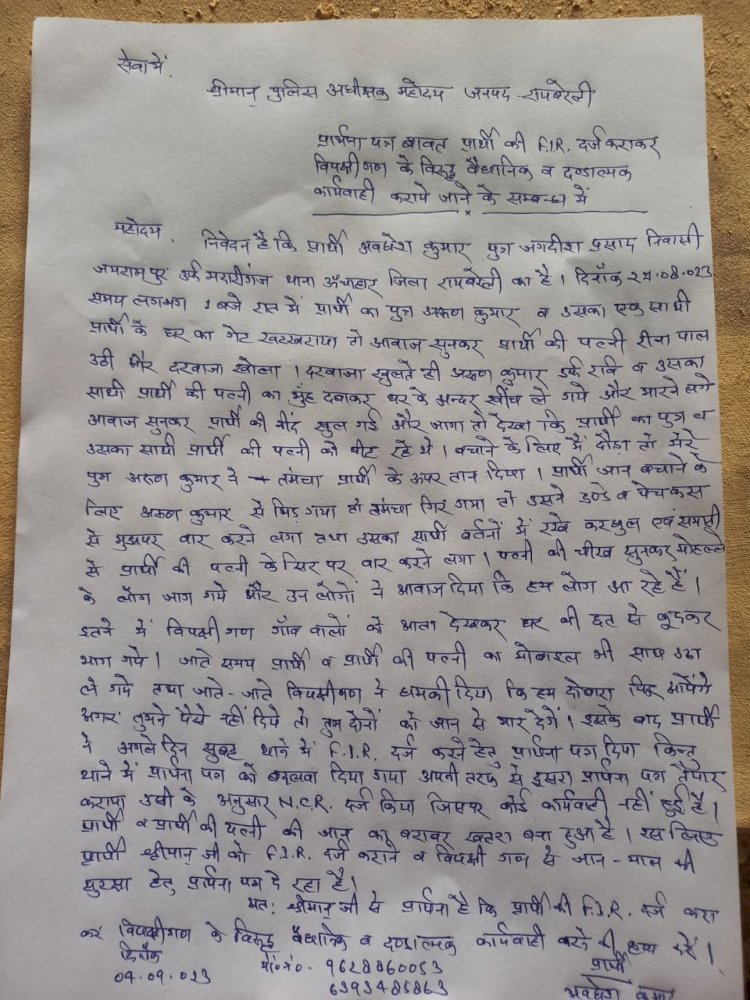 सेवा में,
श्रीमान् पुलिस अधीक्षक महोदय जनपद - रायबरेली
प्रार्थना पत्र बावत प्रार्थी की F.I.R. दर्ज कराकर
विपक्षीगण के विरूद्ध वैधानिक व दण्डात्मक
कार्यवाही कराये जाने के सम्बन्ध में
महोदय, निवेदन है कि प्रार्थी अवधेश कुमार पुत्र जगदीश प्रसाद निवासी
जयरामपुर उर्फ मदारीगंज थाना ऊँचाहार जिला रायबरेली का है। दिनाँक 24.08.023
समय लगभग 1 बजे रात में प्रार्थी का पुत्र अरूण कुमार व उसका एक साथी
प्रार्थी के घर का गेट खटखटाया तो आवाज सुनकर प्रार्थी की पत्नी रीना पाल
उठी और दरवाजा खोला। दरवाजा खुलते ही अरूण कुमार उर्फ रवि व उसका
साथी प्रार्थी की पत्नी का मुँह दबाकर घर के अन्दर खींच ले गये और मारने लगे
आवाज सुनकर प्रार्थी की नींद खुल गई और जागा तो देखा कि प्रार्थी का पुत्र व
उसका साथी प्रार्थी की पत्नी को पीट रहे थे। बचाने के लिए मैं दौड़ा तो मेरे
पुत्र अरूण कुमार ने तमंचा प्रार्थी के ऊपर तान दिया। प्रार्थी जान बचाने के
लिए अरूण कुमार से भिड़ गया तो तमंचा गिर गया तो उसने डण्डे व पेचकस
से मुझपर वार करने लगा तथा उसका साथी बर्तनों में रखे करछुल एवं समासी
से प्रार्थी की पत्नी के सिर पर वार करने लगा। पत्नी की चीख सुनकर मोहल्ले
के लोग जाग गये और उन लोगों ने आवाज दिया कि हम लोग आ रहे हैं।
इतने में विपक्षीगण गाँव वालों को आता देखकर घर की छत से कूदकर
भाग गये। जाते समय प्रार्थी व प्रार्थी की पत्नी का मोबाइल भी साथ उठा
ले गये तथा जाते-जाते विपक्षीगण ने धमकी दिया कि हम दोबारा फिर आयेंगे
अगर तुमने पैसे नहीं दिये तो तुम दोनों को जान से मार देगें। इसके बाद प्रार्थी
ने अगले दिन सुबह थाने में F.I.R. दर्ज करने हेतु प्रार्थना पत्र दिया किन्तु
थाने में प्रार्थना पत्र को बदलवा दिया गया अपनी तरफ से दूसरा प्रार्थना पत्र तैयार
कराया उसी के अनुसार N.C.R. दर्ज किया जिसपर कोई कार्यवाही नहीं हुई है।
प्रार्थी व प्रार्थी की पत्नी की जान का बराबर खतरा बना हुआ है। इस लिए
प्रार्थी श्रीमान् जी को F.I.R. दर्ज कराने व विपक्षी गण से जान-माल की
सुरक्षा हेतु प्रार्थना पत्र दे रहा है।
अत: श्रीमान् जी से प्रार्थना है कि प्रार्थी की F.I.R. दर्ज करा
कर विपक्षीगण के विरूद्ध वैधानिक व दण्डात्मक कार्यवाही करने की कृपा करें।
दिनाँक
04.09.023
मो०नं०- 9628860053
6393485863
प्रार्थी
अवधेश कुमार